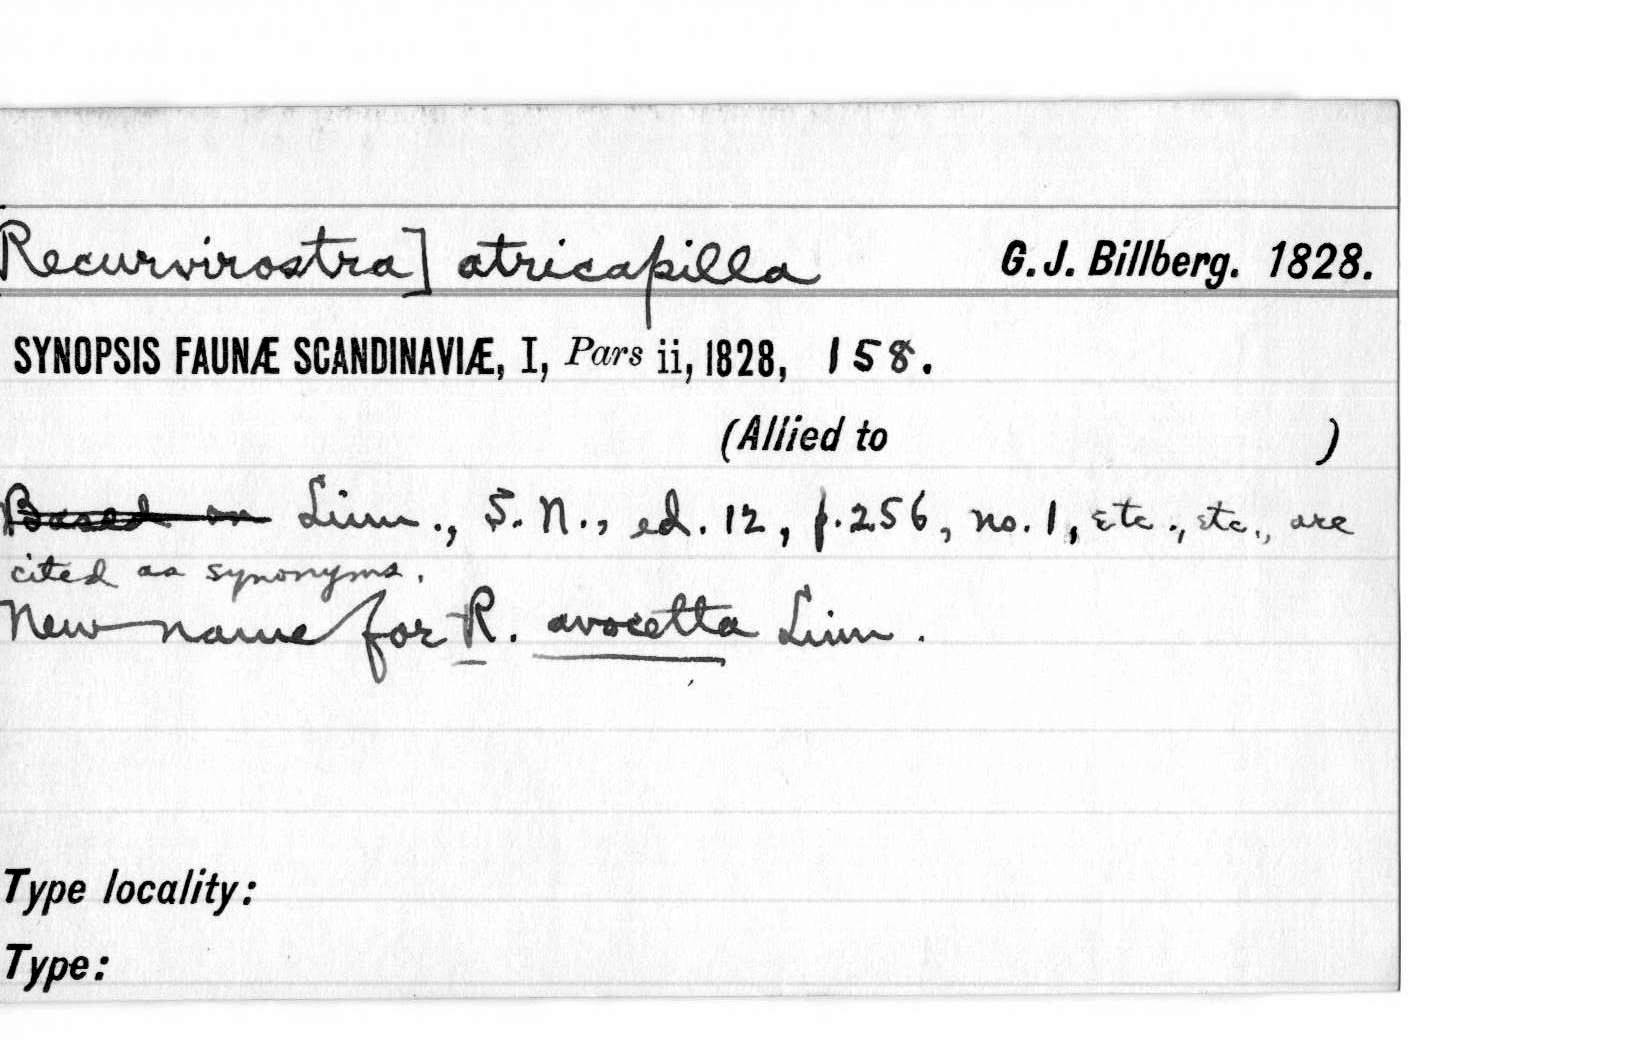 Recurvirostra] atricapilla G. J. Billberg. 1828.
SYNOPSIS FAUNÆ SCANDINAVIÆ, I, Pars ii, 1828, 158.
(Allied to )
Based on Linn., S. N., ed. 12, p. 256, no. 1, etc., etc., are
cited as synonyms.
New name for R. avocetta Linn.
Type locality:
Type: